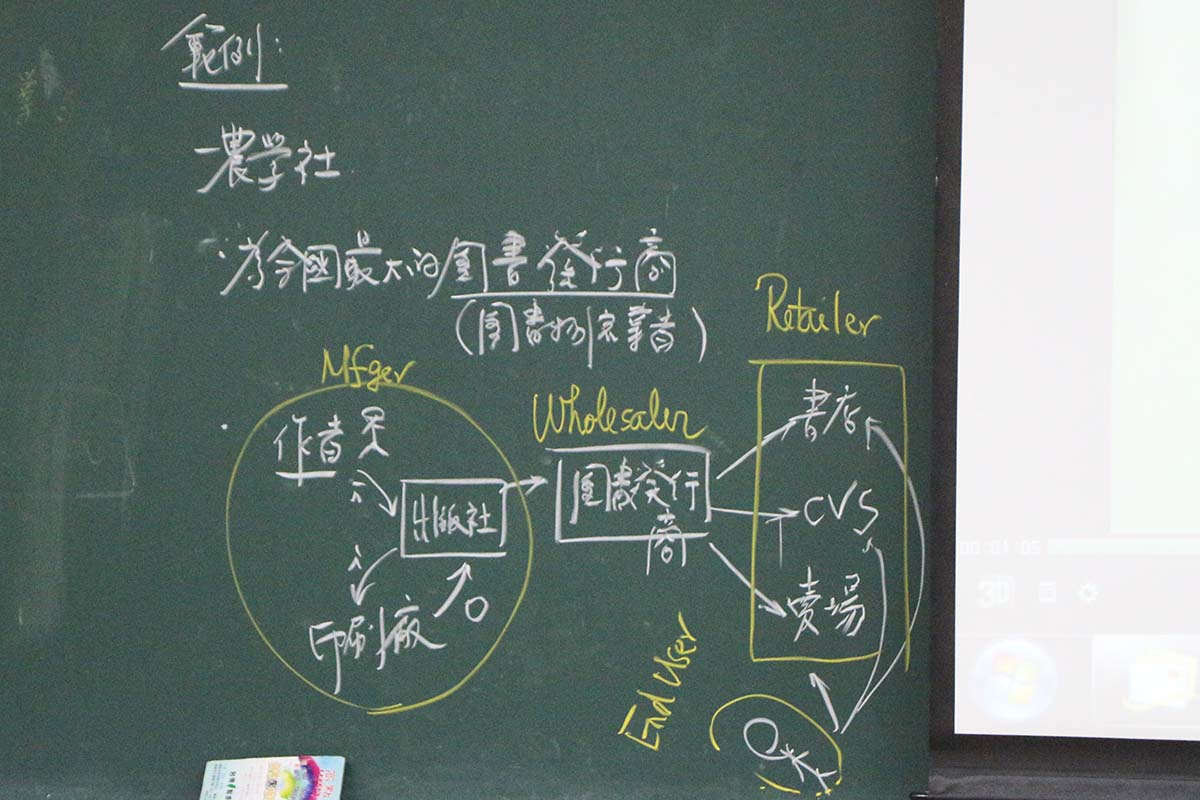 範例:
一農学社
·為全國最大的圖書發行商
(圖書物流業者)
Retailer
Mfger
Wholesaler
作者
出版社
印刷廠
圖書發行
商
書店
CVS
賣場
End User
00:01:05
3D